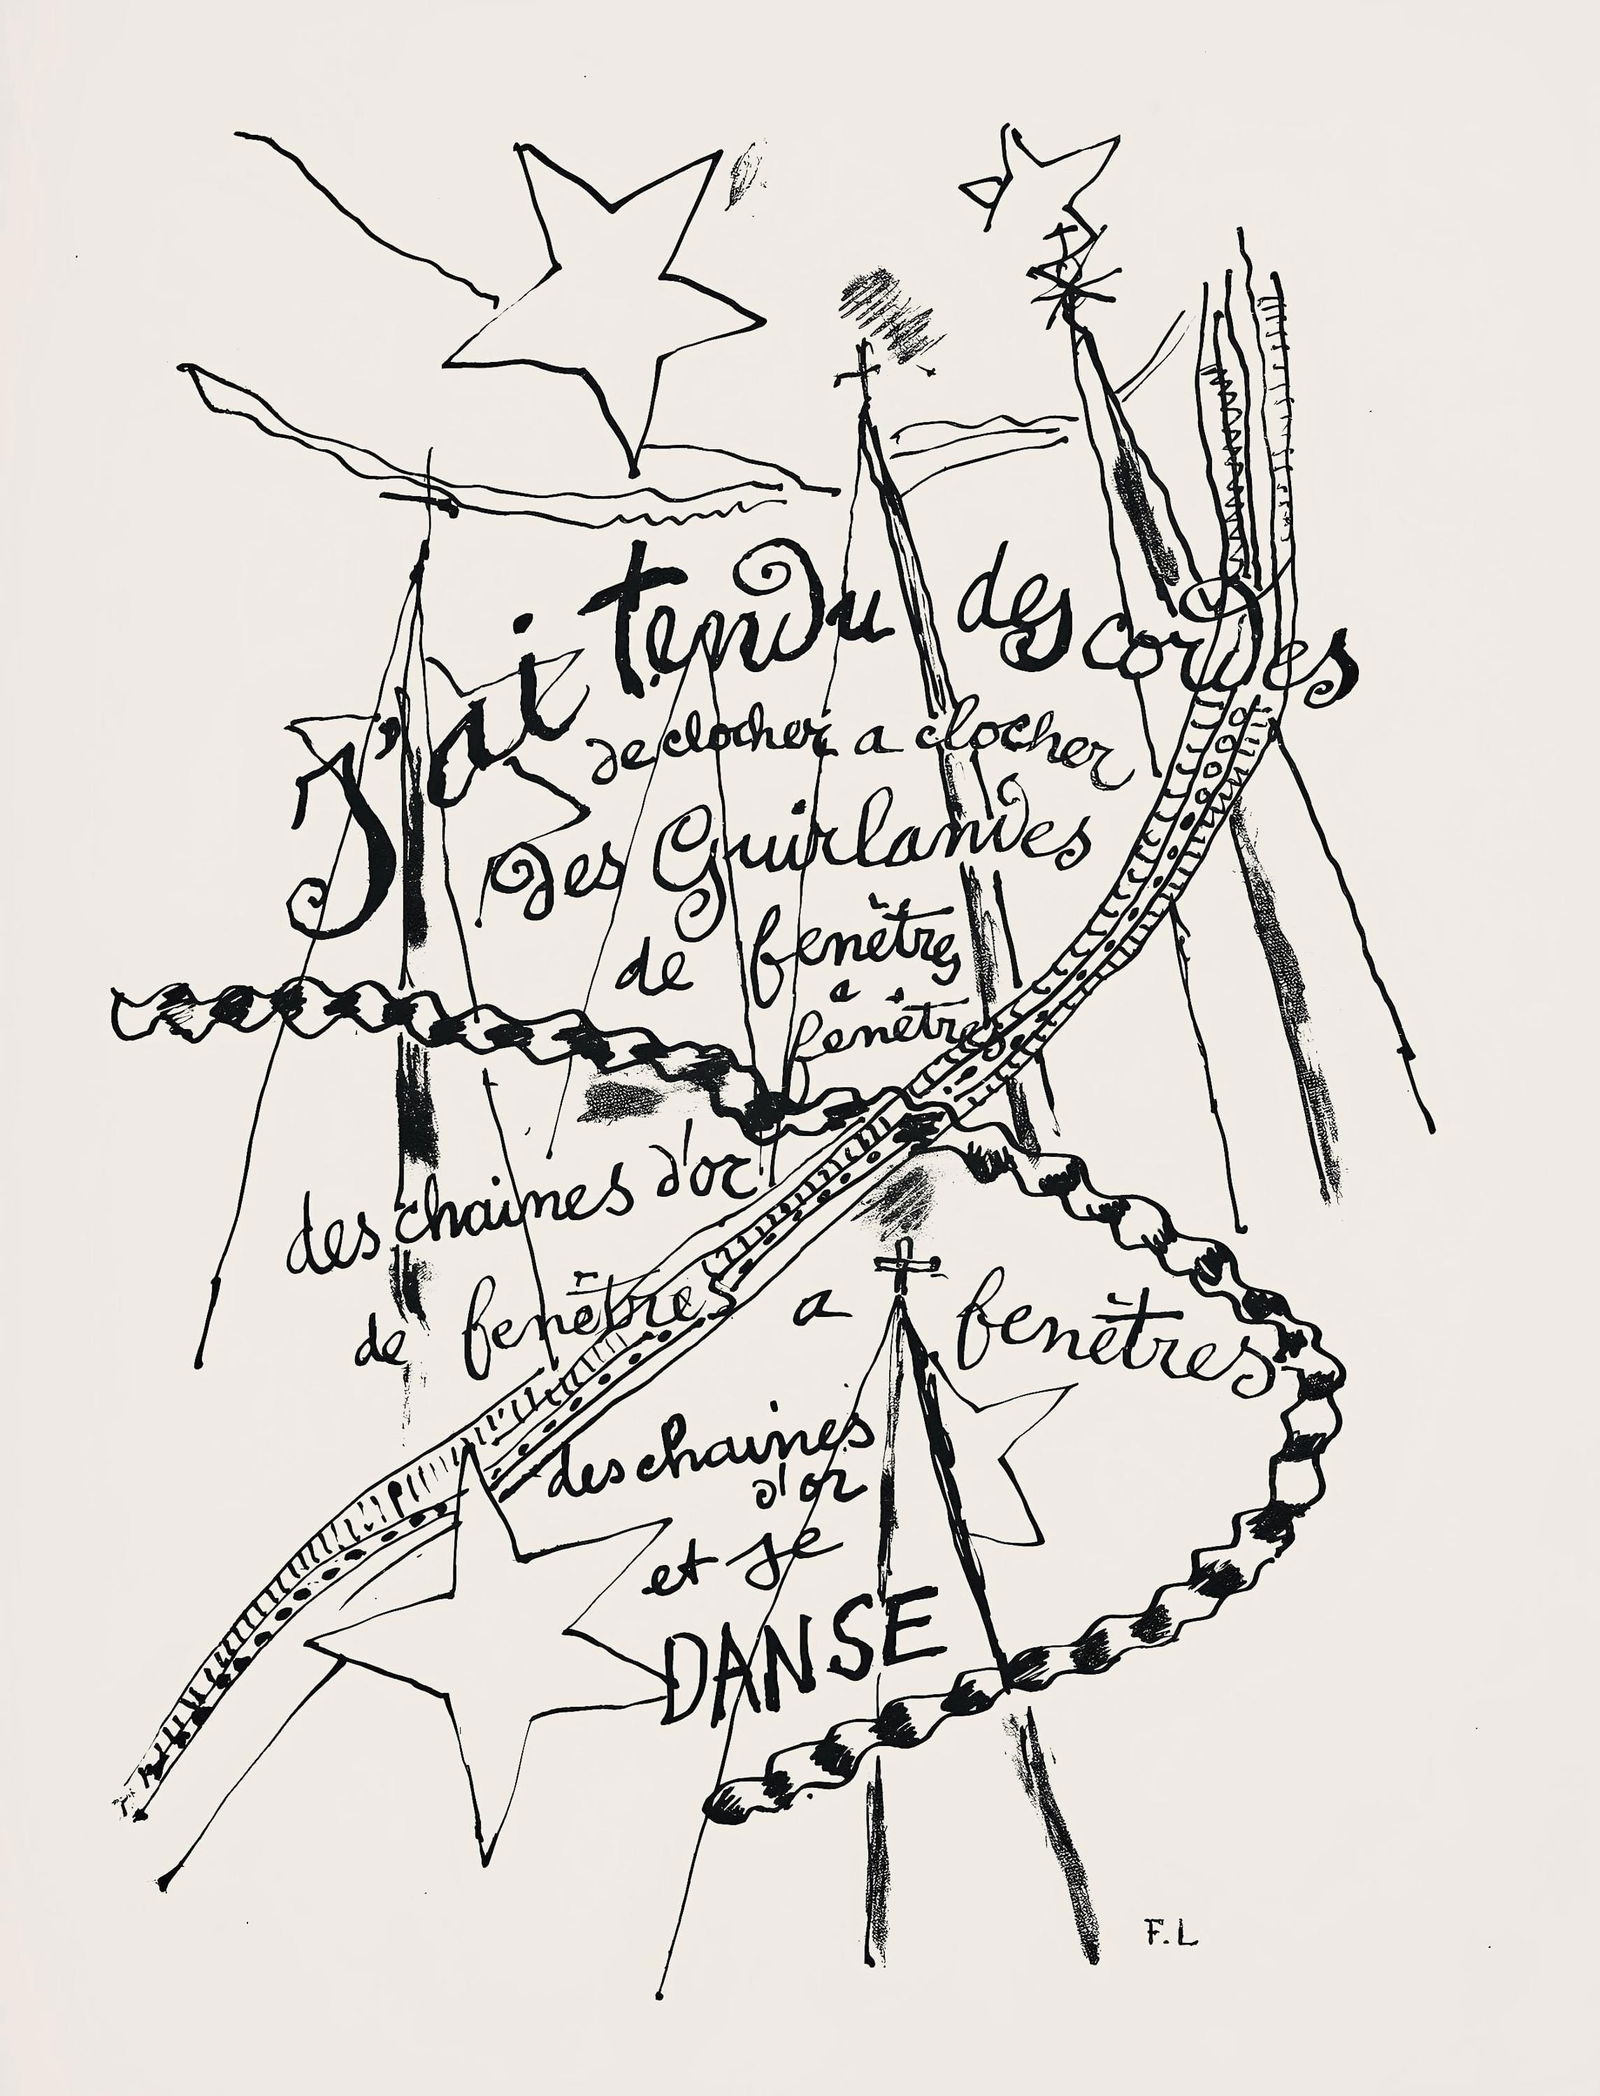 J'ai tendu des cordes
de clocher a clocher
des Guirlandes
de fenêtre
a
fenêtre
des chaines d'or
de fenêtres a fenêtres
des chaines
d'or
et je
DANSE
F.L